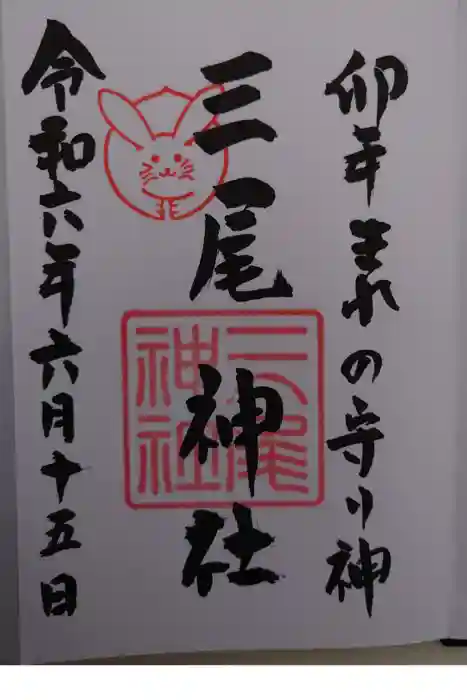 卯年まれの守り神
三尾神社
三尾神社
令和六年六月十五日